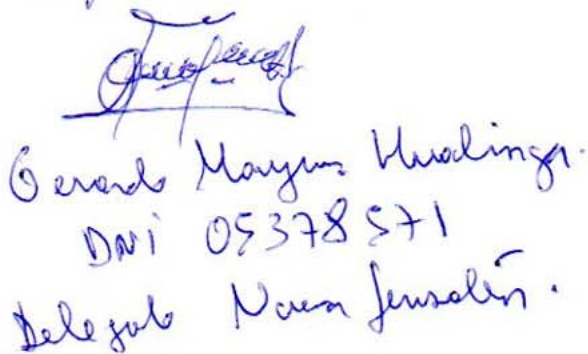 Gerardo Maynas Hualinga.
DNI 05378571
Delegado Nueva Jerusalén.